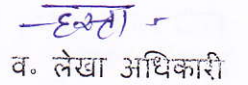 —हस्ता—
व. लेखा अधिकारी